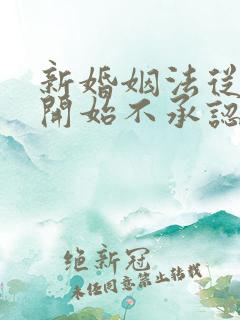 新婚姻法從
開始不承認
絕新冠
未任同意禁止转载